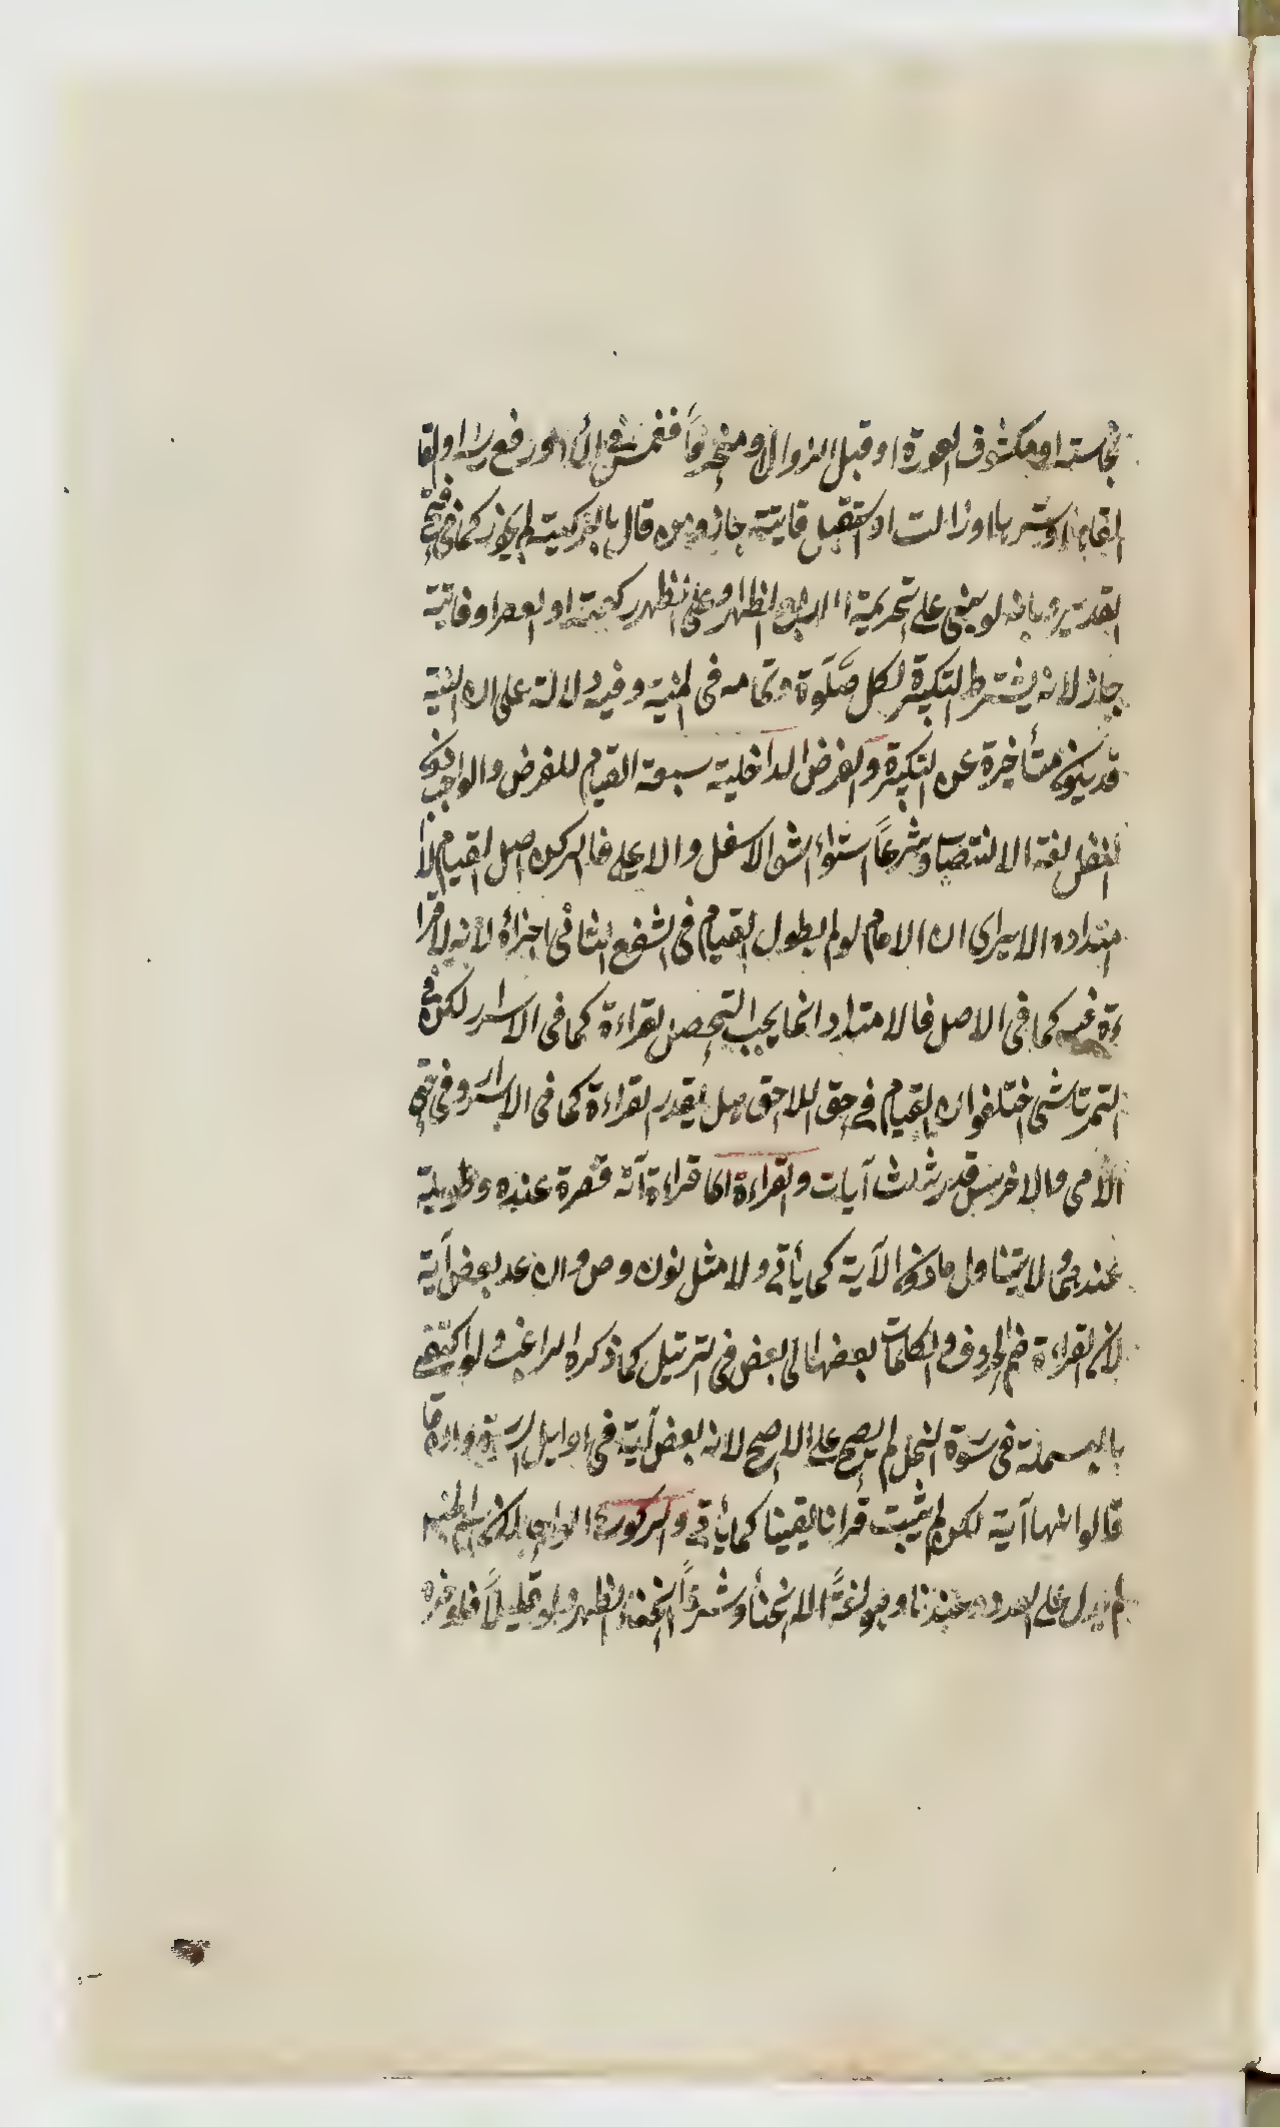 نجاسته او مكشوف العورة او قبل الزوال او منحرفاً فغمس في الماء ورفع راسه او القا
القاها او سترها او زالت او استقبل قايته جاز ومن قال بالركعية لم يجز كما في فتح
القدير وبانه لو يبنى على تحريمة الظهر وعلى الظهر ركعتيه او العصر او فايتة
جاز لانه يشترط التكبيرة لكل صلوة وتمامه فى المنية وفيه دلالة على ان النية
قد يكون متأخيرة عن التكبيرة والفرض الداخلية سبعة القيام للفرض والواجب دون
النفل لغة الانتصاب وشرعاً استواء الشق الاسفل والاعلى فالركن اصل القيام لا
امتداده الا يرى ان الامام لو لم يطول القيام فى الشفع الثانى اجزأه لانه لا قرا
ءة فيه كما فى الاصل فالامتداد انما يجب التحصل لقراءة كما فى الاسرار لكن فى
التمرتاشى اختلفوا ان القيام فى حق اللاحق هل يقدر لقراءة كما فى الاسرار وفى حق
الأمى والاخرس قدر ثلث آيات والقراءة اى قراءة آية قصيرة عنده وطويلة
عندهما ولا يتناول ما دون الآية كما يأتى ولا مثل نون وص وان عد بعض آية
لان القراءة ضم الحروف والكلمات بعضها الى بعض فى الترتيل كما ذكره الراغب ولو اكتفى
بالبسملة فى سورة النحل لم يصح على الاصح لانه بعض آية فى اوايل السورة وان
قالوا انها آية لكن لم يثبت قرانا يقينا كما يأتى والركوع الواحد لان اسم الجنس
لم يدل على العدد عندنا وهو لغةً الانحناء وشرعاً انحناء الظهر ولو قليلاً فلو خره